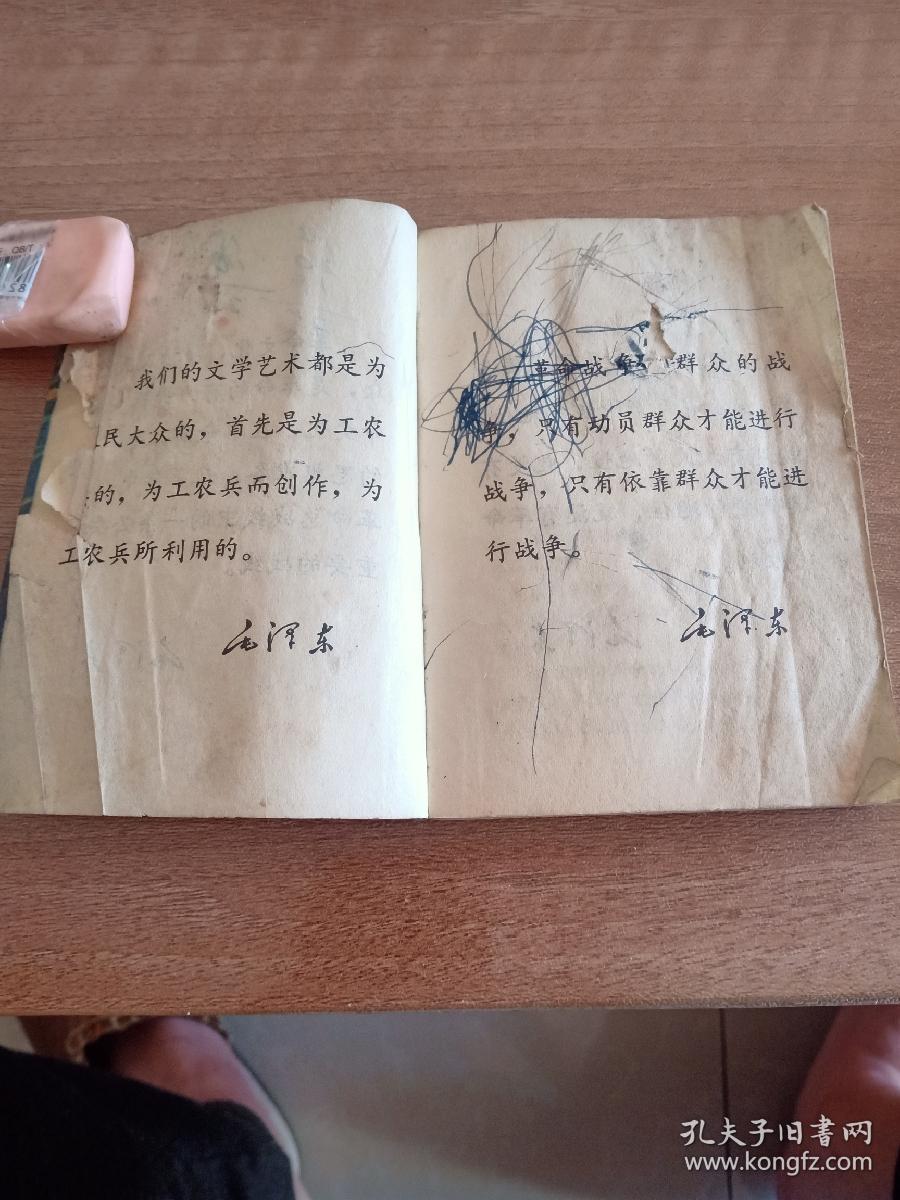 我们的文学艺术都是为
民大众的，首先是为工农
的，为工农兵而创作，为
工农兵所利用的。
毛泽东
革命战争 群众的战
争，只有动员群众才能进行
战争，只有依靠群众才能进
行战争。
毛泽东
孔夫子旧书网
www.kongfz.com